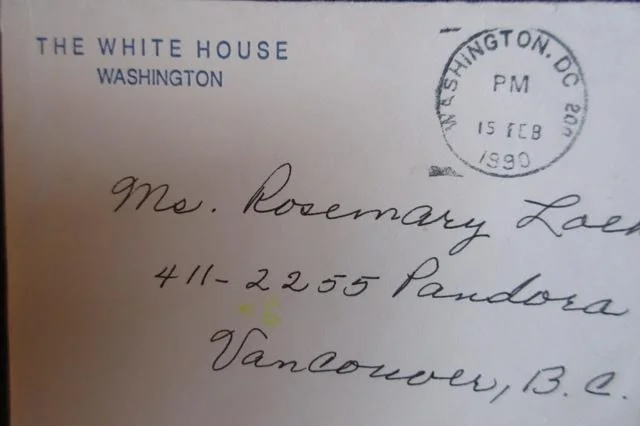 THE WHITE HOUSE
WASHINGTON
WASHINGTON, DC 200
PM
15 FEB
1990
Ms. Rosemary
411-2255 Pandora
Vancouver, B.C.